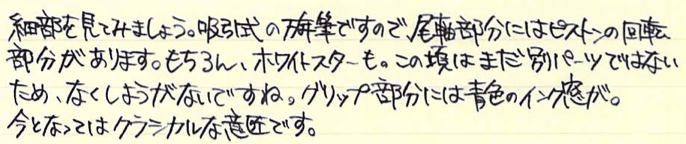 細部を見てみましょう。吸引式の万年筆ですので、尾軸部分にはピストンの回転
部分があります。もちろん、ホワイトスターも。この頃はまだ別パーツではない
ため、なくしようがないですね。グリップ部分には青色のインク窓が。
今となってはクラシカルな意匠です。